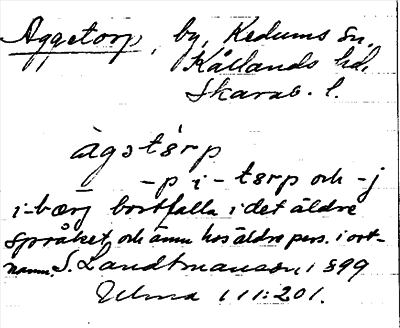 Aggetorp, by, Kedums sn,
Kållands hd,
Skarab. l.
àgətśrp
-p i -tsrp och -j
i -bærj bortfalla i det äldre
språket och ännu hos äldre pers. i ort-
namn. S. Landtmanson 1899
Ulma 111:201.